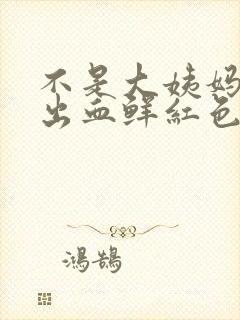 不是大姨妈
出血鲜红色
鴻鵠